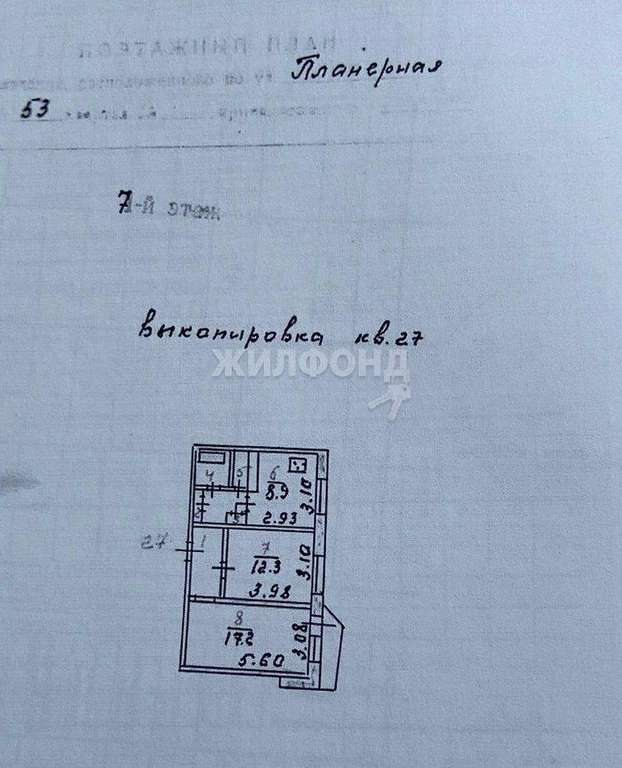 Планерная
53
7-й этаж
выкопировка кв. 27
ЖИЛФОНД
4 5 6
8.9
3.10
2.93
2 3
27 1 7
12.3
3.10
3.98
8
17.2
3.08
5.60